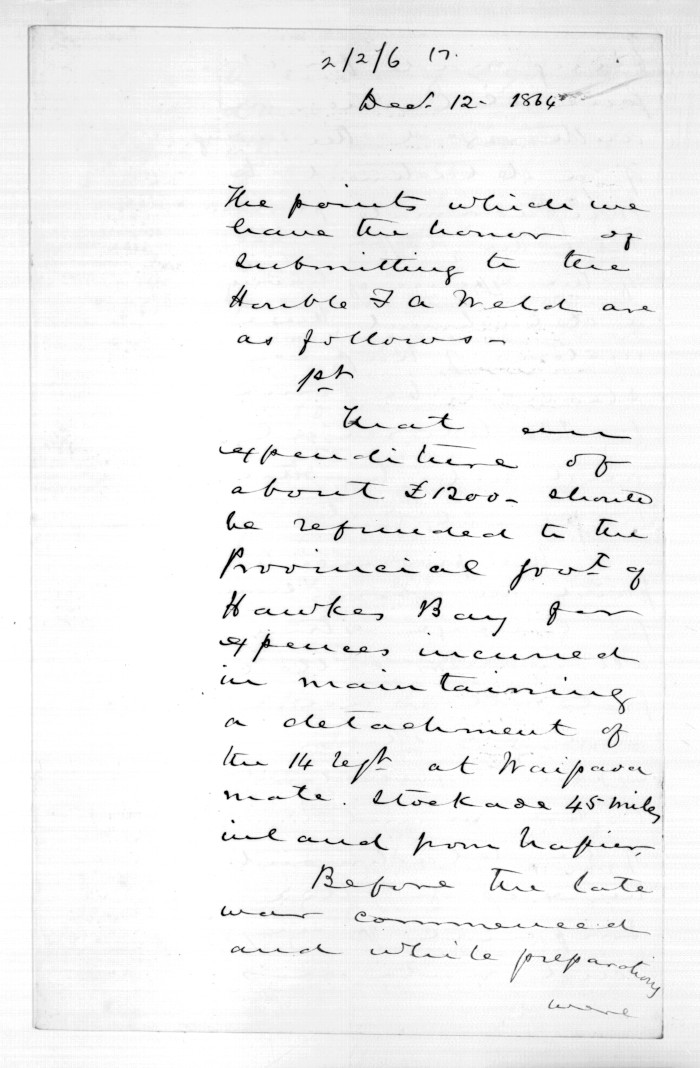 2/2/6 17.
Decr. 12- 1864
The points which we
have the honor of
submitting to the
Honble F A Weld are
as follows-
1st
That our
expenditure of
about £1200- should
be refunded to the
Provincial Govt of
Hawkes Bay for
expences incurred
in maintaining
a detachment of
the 14 Regt at Waipawa
mate. Stockade 45 miles
inland from Napier.
Before the late
war commenced
and while preparations
were